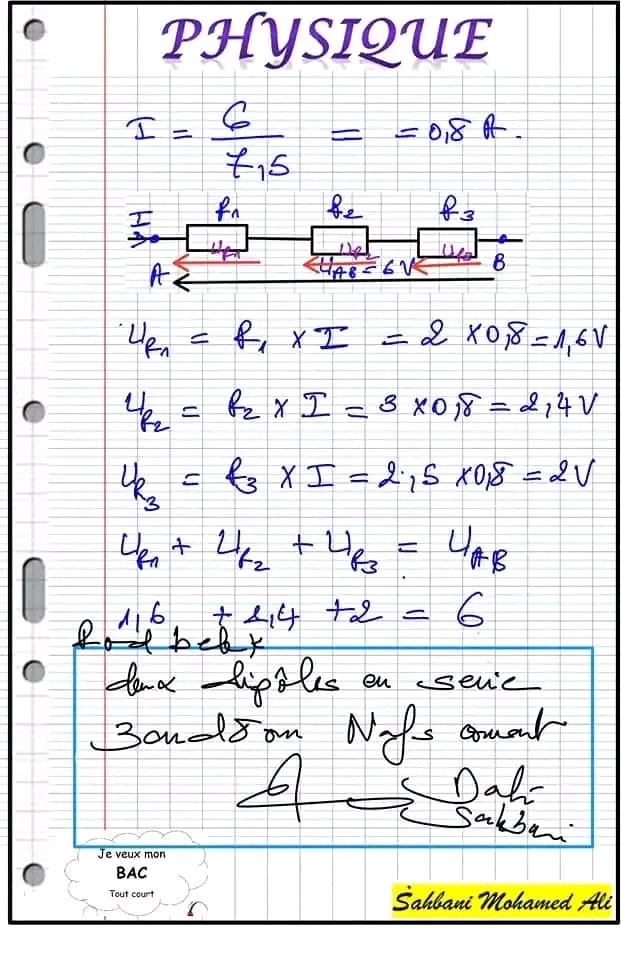 PHYSIQUE
I = 6 / 7,5 = = 0,8 A.
I R1 R2 R3
UR1 UR2 UR3
A UAB = 6V B
UR1 = R1 x I = 2 x 0,8 = 1,6V
UR2 = R2 x I = 3 x 0,8 = 2,4V
UR3 = R3 x I = 2,5 x 0,8 = 2V
UR1 + UR2 + UR3 = UAB
1,6 + 2,4 + 2 = 6
Rod belk
deux dipôles en serie
3and8om Nafs courant
Dali
Sahbani
Je veux mon
BAC
Tout court
Sahbani Mohamed Ali